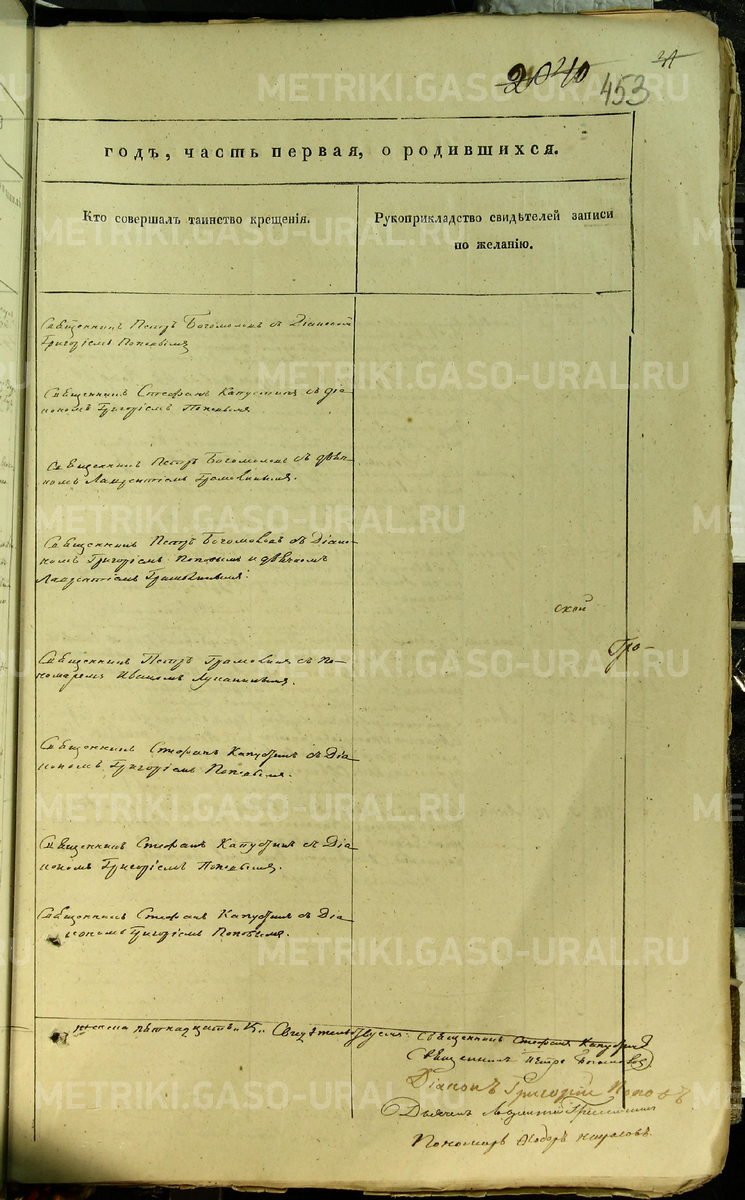 2040
453
годъ, часть первая, о родившихся.
Кто совершалъ таинство крещенія.
Рукоприкладство свидѣтелей записи
по желанію.
Священникъ Петръ Богомоловъ съ Діакономъ
Григоріемъ Поповымъ
Священникъ Стефанъ Капустинъ съ діа-
кономъ Григоріемъ Поповымъ
Священникъ Петръ Богомоловъ съ дьяч-
комъ Лаврентіемъ
Священникъ Петръ Богомоловъ съ Діако-
номъ Григоріемъ Поповымъ и дьячкомъ
Лаврентіемъ
ской
Гро-
Священникъ Петръ съ по-
номаремъ Иваномъ
Священникъ Стефанъ Капустинъ съ Діа-
кономъ Григоріемъ Поповымъ.
Священникъ Стефанъ Капустинъ съ Діа-
кономъ Григоріемъ Поповымъ.
Священникъ Стефанъ Капустинъ съ Діа-
кономъ Григоріемъ Поповымъ.
пятнадцать Священникъ Стефанъ Капустинъ
Священникъ Петръ Богомоловъ
Діаконъ Григорій Поповъ
Дьячекъ Лаврентій
Пономарь Ѳедоръ
METRIKI.GASO-URAL.RU